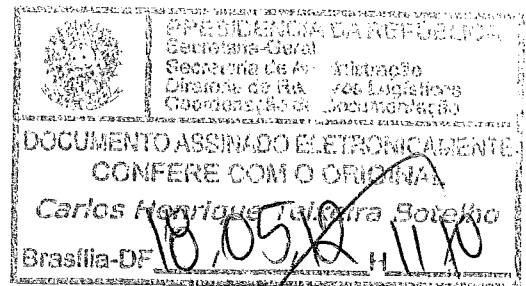 PRESIDÊNCIA DA REPÚBLICA
Secretaria-Geral
Secretaria de
Diretoria de Logísticos
Coordenação de Documentação
DOCUMENTO ASSINADO ELETRONICAMENTE
CONFERE COM O ORIGINAL
Carlos Henrique Teixeira Botelho
Brasília-DF 18,05, H